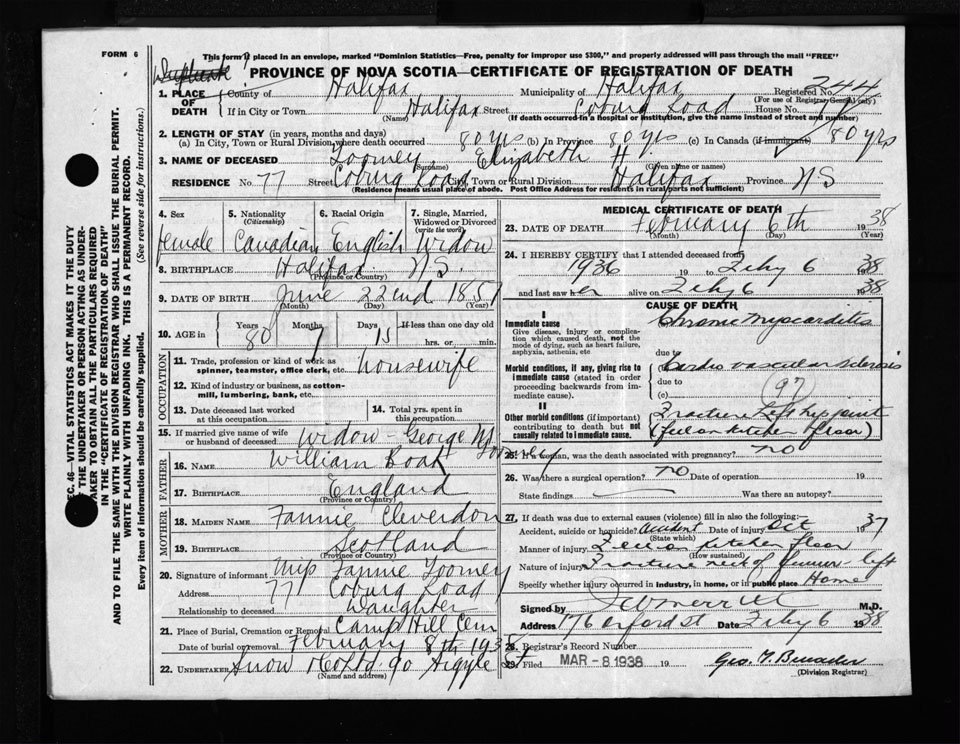 FORM 6
This form if placed in an envelope, marked "Dominion Statistics—Free, penalty for improper use $300," and properly addressed will pass through the mail "FREE"
Duplicate
PROVINCE OF NOVA SCOTIA—CERTIFICATE OF REGISTRATION OF DEATH
1. PLACE OF DEATH County of Halifax Municipality of Halifax Registered No. 244
(For use of Registrar General only)
If in City or Town Halifax Street Coburg Road House No. 77
(Name) (If death occurred in a hospital or institution, give the name instead of street and number)
2. LENGTH OF STAY (in years, months and days)
(a) In City, Town or Rural Division where death occurred 80 yrs (b) In Province 80 yrs (c) In Canada (if immigrant) 80 yrs
3. NAME OF DECEASED Toomey Elizabeth H
(Surname) (Given name or names)
RESIDENCE No. 77 Street Coburg Road City, Town or Rural Division Halifax Province NS
(Residence means usual place of abode. Post Office Address for residents in rural parts not sufficient)
4. Sex 5. Nationality 6. Racial Origin 7. Single, Married,
(Citizenship) Widowed or Divorced
(write the word)
female Canadian English Widow
8. BIRTHPLACE Halifax NS.
(Province or Country)
9. DATE OF BIRTH June 22nd 1857
(Month) (Day) (Year)
10. AGE in Years Months Days If less than one day old
80 7 15 hrs. or min.
OCCUPATION
11. Trade, profession or kind of work as
spinner, teamster, office clerk, etc. housewife
12. Kind of industry or business, as cotton-
mill, lumbering, bank, etc.
13. Date deceased last worked
at this occupation
14. Total yrs. spent in
this occupation
15. If married give name of wife
or husband of deceased widow - George Toomey
FATHER
16. NAME William Boak
17. BIRTHPLACE England
(Province or Country)
MOTHER
18. MAIDEN NAME Fannie Cleverdon
19. BIRTHPLACE Scotland
(Province or Country)
20. Signature of informant Miss Fannie Toomey
Address 77 Coburg Road
Relationship to deceased Daughter
21. Place of Burial, Cremation or Removal Camp Hill Cem
Date of burial or removal February 8th 1938
22. UNDERTAKER Snow & Co Ltd 90 Argyle St
(Name and address)
MEDICAL CERTIFICATE OF DEATH
23. DATE OF DEATH February 6th 1938
(Month) (Day) (Year)
24. I HEREBY CERTIFY that I attended deceased from
1936 19 to Feby 6 1938
and last saw her alive on Feby 6 1938
CAUSE OF DEATH
I
Immediate cause Chronic Myocarditis
Give disease, injury or complica-
tion which caused death, not the
mode of dying, such as heart failure,
asphyxia, asthenia, etc
due to
Morbid conditions, if any, giving rise to
immediate cause (stated in order
proceeding backwards from im-
mediate cause).
Cardio vascular sclerosis
due to 97
(c)
II
Other morbid conditions (if important)
contributing to death but not
causally related to immediate cause.
Fracture left hip joint
(fell on kitchen floor)
25. If a woman, was the death associated with pregnancy? no
26. Was there a surgical operation? no Date of operation 19
State findings Was there an autopsy?
27. If death was due to external causes (violence) fill in also the following:
Accident, suicide or homicide? Accident Date of injury Oct 1937
(State which)
Manner of injury Fell on kitchen floor
(How sustained)
Nature of injury Fracture neck of femur left
Specify whether injury occurred in industry, in home, or in public place Home
Signed by Merritt M.D.
Address 176 Oxford St Date Feby 6 1938
28. Registrar's Record Number
29. Filed MAR - 8 1938 19 Geo.
(Division Registrar)
SEC. 46—VITAL STATISTICS ACT MAKES IT THE DUTY
OF THE UNDERTAKER OR PERSON ACTING AS UNDER-
TAKER TO OBTAIN ALL THE PARTICULARS REQUIRED
IN THE "CERTIFICATE OF REGISTRATION OF DEATH"
AND TO FILE THE SAME WITH THE DIVISION REGISTRAR WHO SHALL ISSUE THE BURIAL PERMIT.
WRITE PLAINLY WITH UNFADING INK. THIS IS A PERMANENT RECORD.
Every item of information should be carefully supplied. (See reverse side for instructions.)